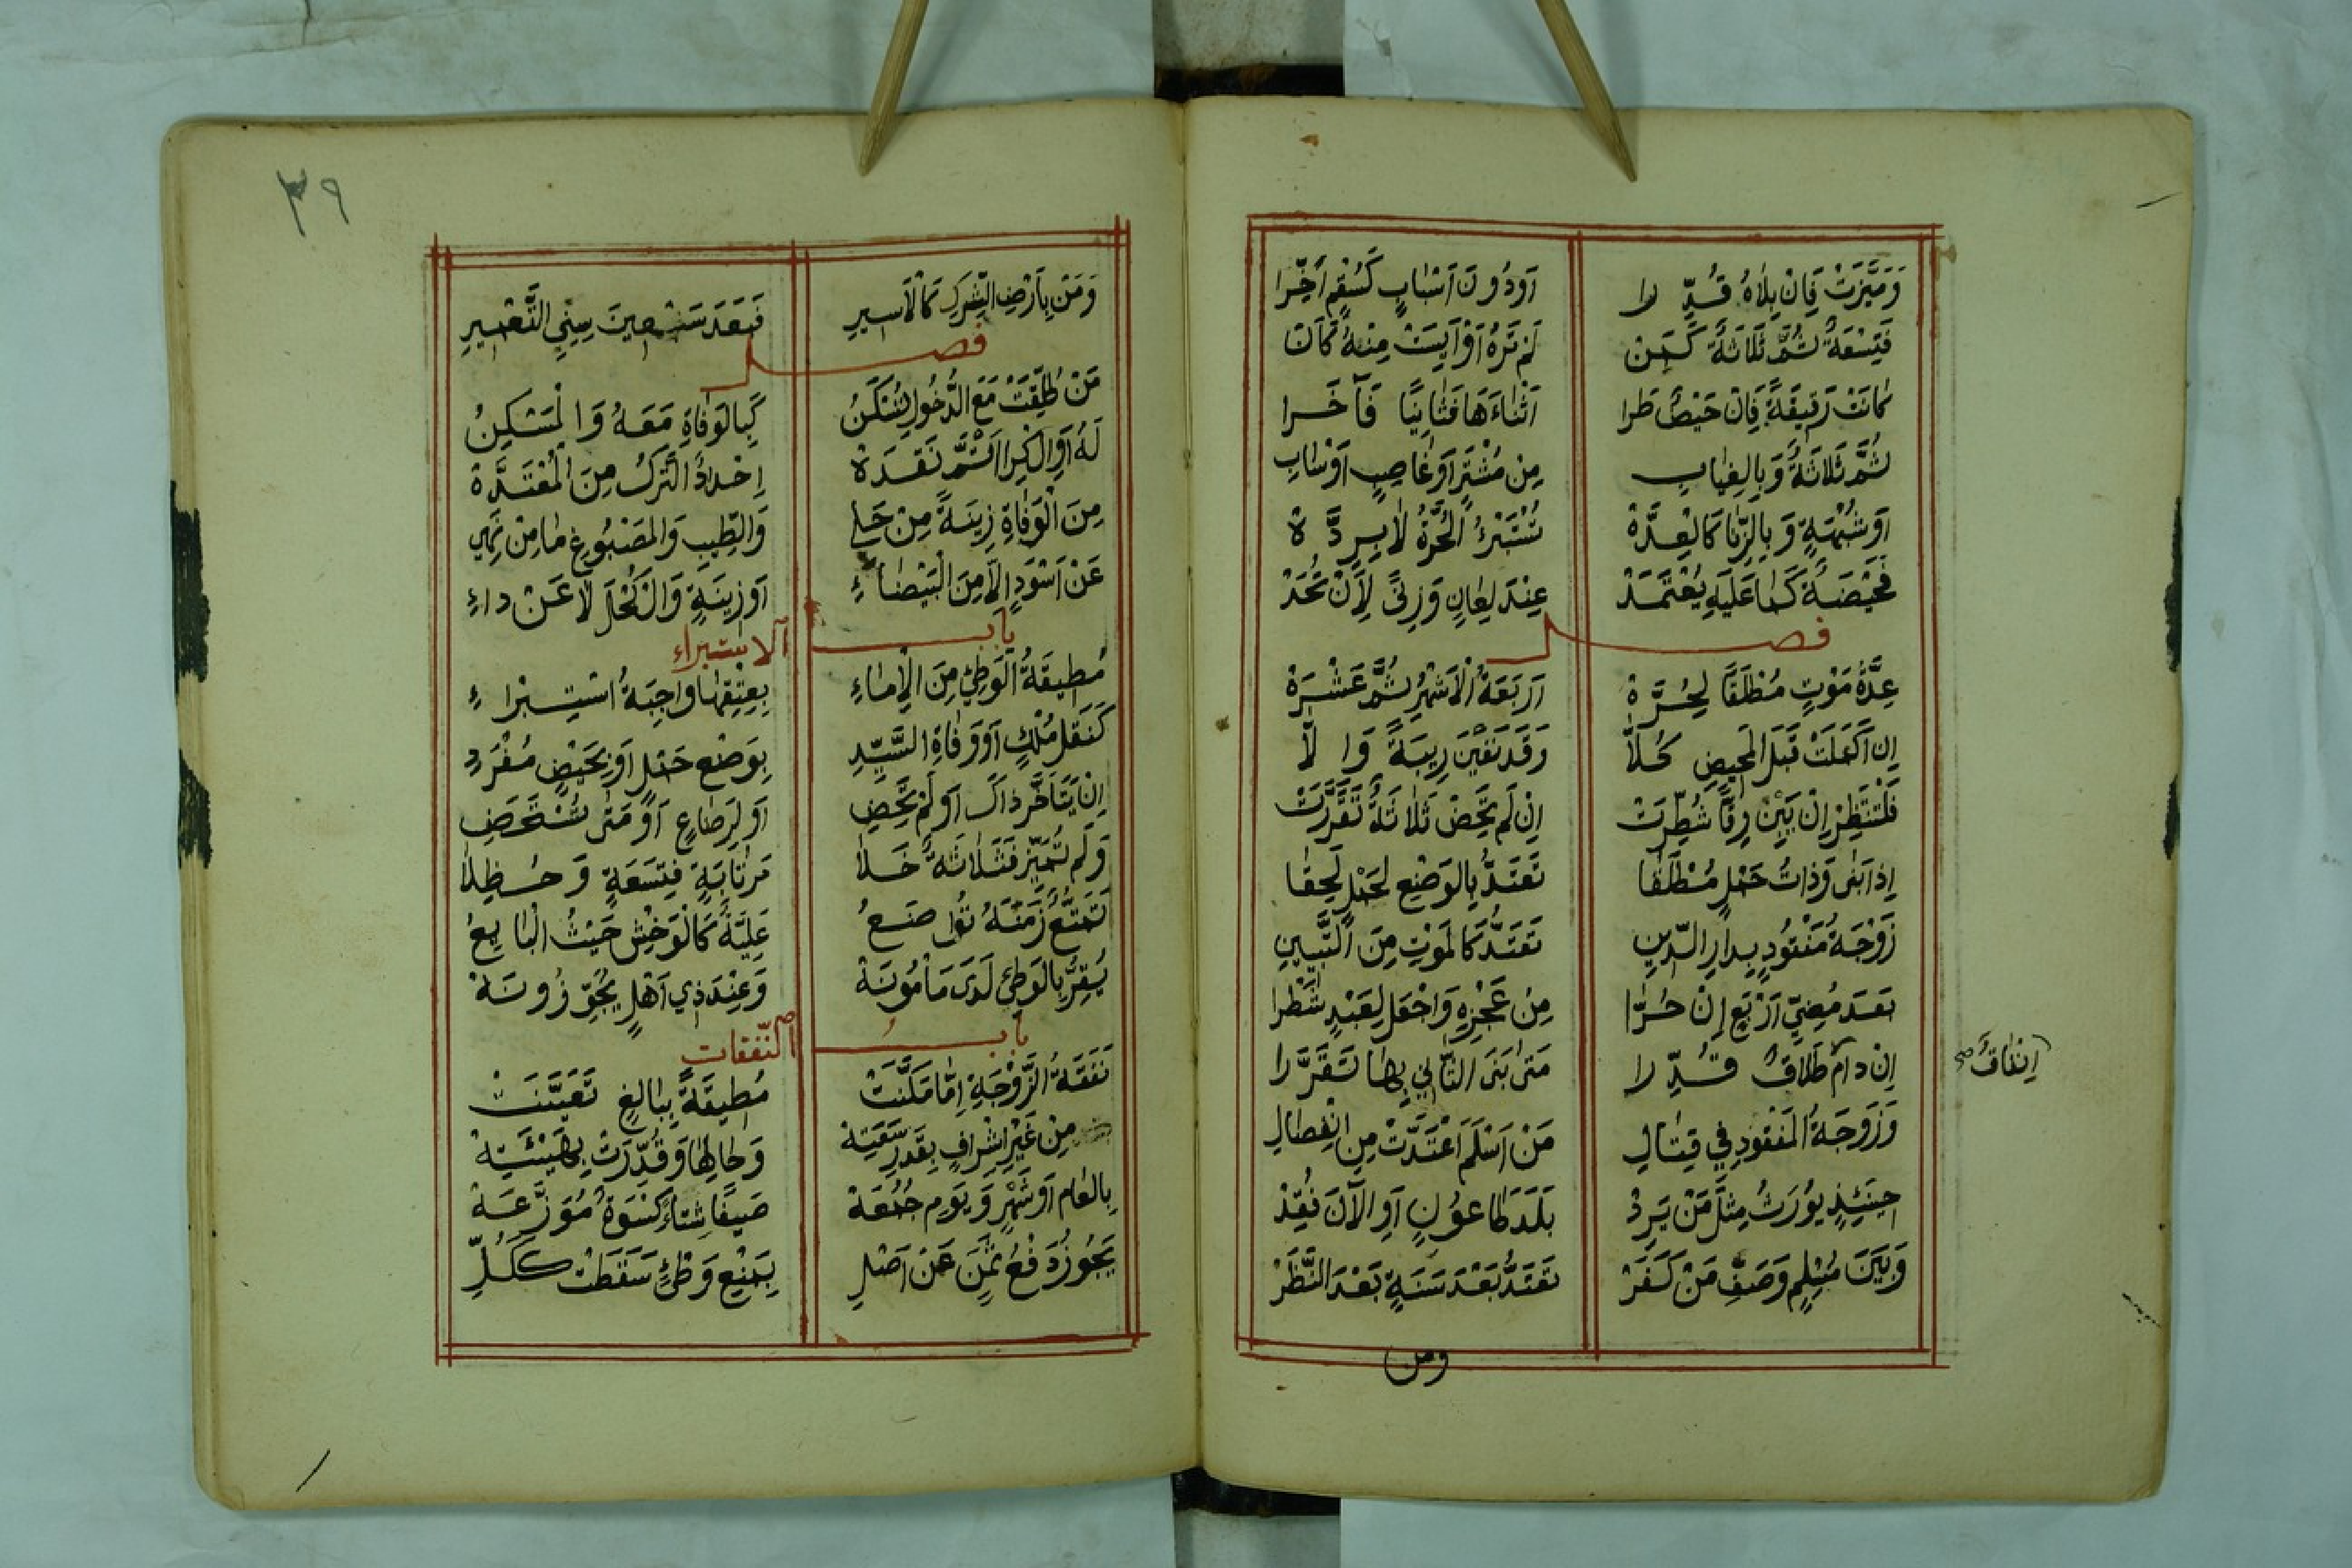 وَمَيَّزَتْ فَإِنْ بِلَاهُ قُدِّرَا اَوْدُونَ اَسْبَابٍ كَسُقْمٍ اَخَّرَا
فَتِسْعَةٌ ثُمَّ ثَلَاثَةٌ كَمَنْ لَمْ تَرَهُ اَوْ اَيِسَتْ مِنْهُ كَاَنْ
كَانَتْ رَقِيقَةً فَاِنْ حَيْضٌ طَرَا اَثْنَاءَهَا فَثَانِيًا فَآخَرَا
ثُمَّ ثَلَاثَةٌ وَبِالغِيَابِ مِنْ مُشْتَرٍ اَوْ غَاصِبٍ اَوْسَابِ
اَوْشُبْهَةٍ وَبِالزِّنَا كَالْعِدَّةْ تُسْتَبْرَئُ الْحُرَّةُ لَا بِرِدَّةْ
فَحَيْضَةٌ كَمَا عَلَيْهِ يُعْتَمَدْ عِنْدَ لِعَانٍ وَزِنًى لِاَنْ تُحَدْ
فصل
عِدَّةُ مَوْتٍ مُطْلَقًا لِحُرَّةْ اَرْبَعَةُ الْاَشْهُرِ ثُمَّ عَشْرَةْ
اِنْ اَكْمَلَتْ قَبْلَ الْمَحِيضِ كُلَّا وَقَدْ نَفَيْنَ رِيبَةً وَاِلَّا
فَلْتَنْتَظِرْ اِنْ يَبِنْ رِقًّا شُطِّرَتْ اِنْ لَمْ تَحِضْ ثَلَاثَةٌ تَقَرَّرَتْ
اِذَا بَنَى وَذَاتُ حَمْلٍ مُطْلَقَا تَعْتَدُّ بِالوَضْعِ لِحَمْلٍ لَحِقَا
زَوْجَةُ مَفْقُودٍ بِدَارِ الدِّينِ تَعْتَدُّ كَالمَوْتِ مِنَ التَّبْيِينِ
بَعْدَ مُضِيِّ اَرْبَعٍ اِنْ حُرَّا مِنْ عَجْزِهِ وَاجْعَلْ لِعَبْدٍ شَطْرَا
اِنْ دَامَ طَلَاقٌ قُدِّرَا مَتَى بَنَى الثَّانِي بِهَا تَقَرَّرَا
اِنْفَاقٌ صح
وَزَوْجَةُ المَفْقُودِ فِي قِتَالِ مَنْ اَسْلَمَ اعْتَدَّتْ مِنِ انْفِصَالِ
حِينَئِذٍ يُورَثُ مِثْلَ مَنْ يَرِدْ بَلَدَ طَاعُونٍ اَوِ الْآنَ فُقِدْ
وَبَيْنَ مُسْلِمٍ وَصَفِّ مَنْ كَفَرْ تَعْتَدُّ بَعْدَ سَنَةٍ بَعْدَ النَّظَرْ
ومن
٣٩
وَمَنْ بِاَرْضِ الشِّرْكِ كَالْاَسِيرِ فَبَعْدَ سَبْعِينَ سِنِي التَّعْمِيرِ
فصل
مَنْ طُلِّقَتْ مَعَ الدُّخُولِ تَسْكُنُ كَبِالوَفَاةِ مَعَهُ وَالْمَسْكَنُ
لَهُ اَوِ الْكِرَا اَتَمَّ نَقْدَهْ اِحْدَادٌ التَّرْكُ مِنَ الْمُعْتَدَّةْ
مِنَ الْوَفَاةِ زِينَةً مِنْ حَلْيِ وَالطِّيبِ وَالمَصْبُوغِ مَا مِنْ نَهْيِ
عَنْ اَسْوَدٍ اِلَّا مِنَ الْبَيْضَاءِ اَوْ زِينَةٍ وَالْكُحْلَ لَا عَنْ دَاءِ
باب الاستبراء
مُطِيقَةُ الوَطْئِ مِنَ الْاِمَاءِ بِعِتْقِهَا وَاجِبَةُ اسْتِبْرَاءِ
كَنَقْلِ مُلْكٍ اَوْ وَفَاةِ السَّيِّدِ بِوَضْعِ حَمْلٍ اَوْ بِحَيْضٍ مُفْرَدِ
اِنْ يَتَاَخَّرْ ذَاكَ اَوْ لَمْ تَحِضِ اَوْ لِرَضَاعٍ اَوْ مَتَى تُسْتَحَضِ
وَلَمْ تُمَيِّزْ فَثَلَاثَةٌ خَلَا مُرْتَابَةٍ فَتِسْعَةٍ وَحُظِلَا
تَمَتُّعٌ زَمَنَهُ تُوَاضَعُ عَلِيَّةٌ كَالوَخْشِ حَيْثُ الْبَايِعُ
يُقِرُّ بِالوَطْئِ لَدَى مَاْمُونَةْ وَعِنْدَ ذِي اَهْلٍ يُحِقُّ دُونَهْ
باب النّفقات
نَفَقَةُ الزَّوْجَةِ اِمَّا مَكَّنَتْ مُطِيقَةً بِبَالِغٍ تَعَيَّنَتْ
مِنْ غَيْرِ اِشْرَافٍ بِقَدْرِ سَعَتِهْ وَحَالِهَا وَقُدِّرَتْ بِهَيْئَتِهْ
بِالعَامِ اَوْ شَهْرٍ وَيَوْمٍ جُمُعَةْ صَيْفًا شِتَاءً كِسْوَةٌ مُوَزَّعَةْ
يَجُوزُ دَفْعُ ثَمَنٍ عَنْ اَصْلِ بِمَنْعِ وَطْئٍ سَقَطَتْ كَكُلِّ